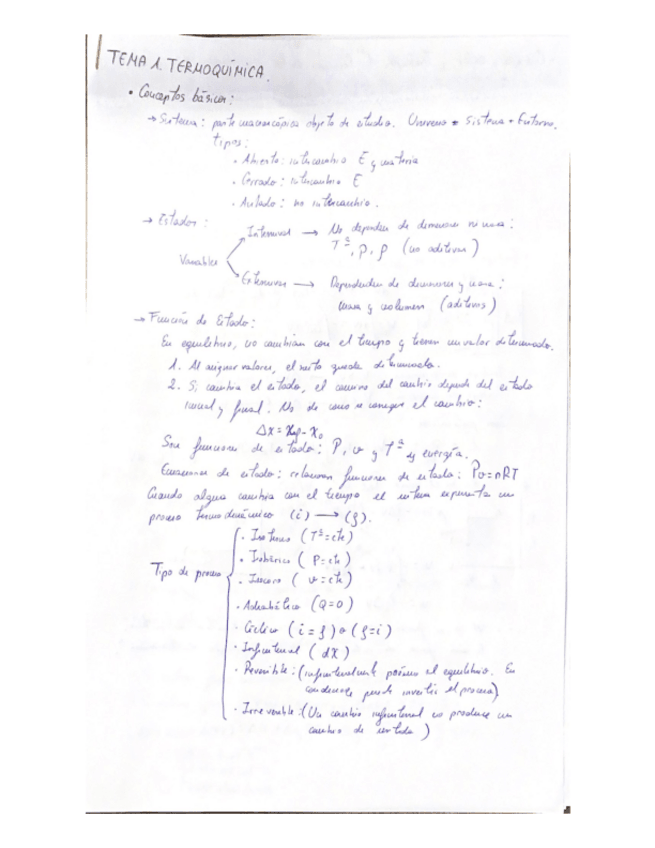 TEMA 1. TERMOQUÍMICA.
• Conceptos básicos:
→ Sistema: parte macroscópica objeto de estudio. Universo = Sistema + Entorno.
tipos:
• Abierto: intercambio E y materia
• Cerrado: intercambio E
• Aislado: no intercambio.
→ Estados:
Variables
Intensivas → No dependen de dimensiones ni masa:
Tª, P, ρ (no aditivas)
Extensivas → Dependientes de dimensiones y masa:
masa y volumen (aditivas)
→ Función de Estado:
En equilibrio, no cambian con el tiempo y tienen un valor determinado.
1. Al asignar valores, el resto queda determinado.
2. Si cambia el estado, el del cambio depende del estado
inicial y final. No de como se consigue el cambio:
Δx = xf - x₀
Son funciones de estado: P, v y Tª y energía.
Ecuaciones de estado: relacionan funciones de estado: Pv=nRT
Cuando alguna cambia con el tiempo el sistema experimenta un
proceso termodinámico (i) → (f).
Tipo de proceso
• Isotermo (Tª=cte)
• Isobárico (P=cte)
• Isocoro (v=cte)
• Adiabático (Q=0)
• Cíclico (i=f) o (f=i)
• Infinitesimal (dX)
• Reversible: (infinitesimalmente próximo al equilibrio. En
puede invertir el proceso)
• Irreversible: (Un cambio infinitesimal no produce un
cambio de sentido)